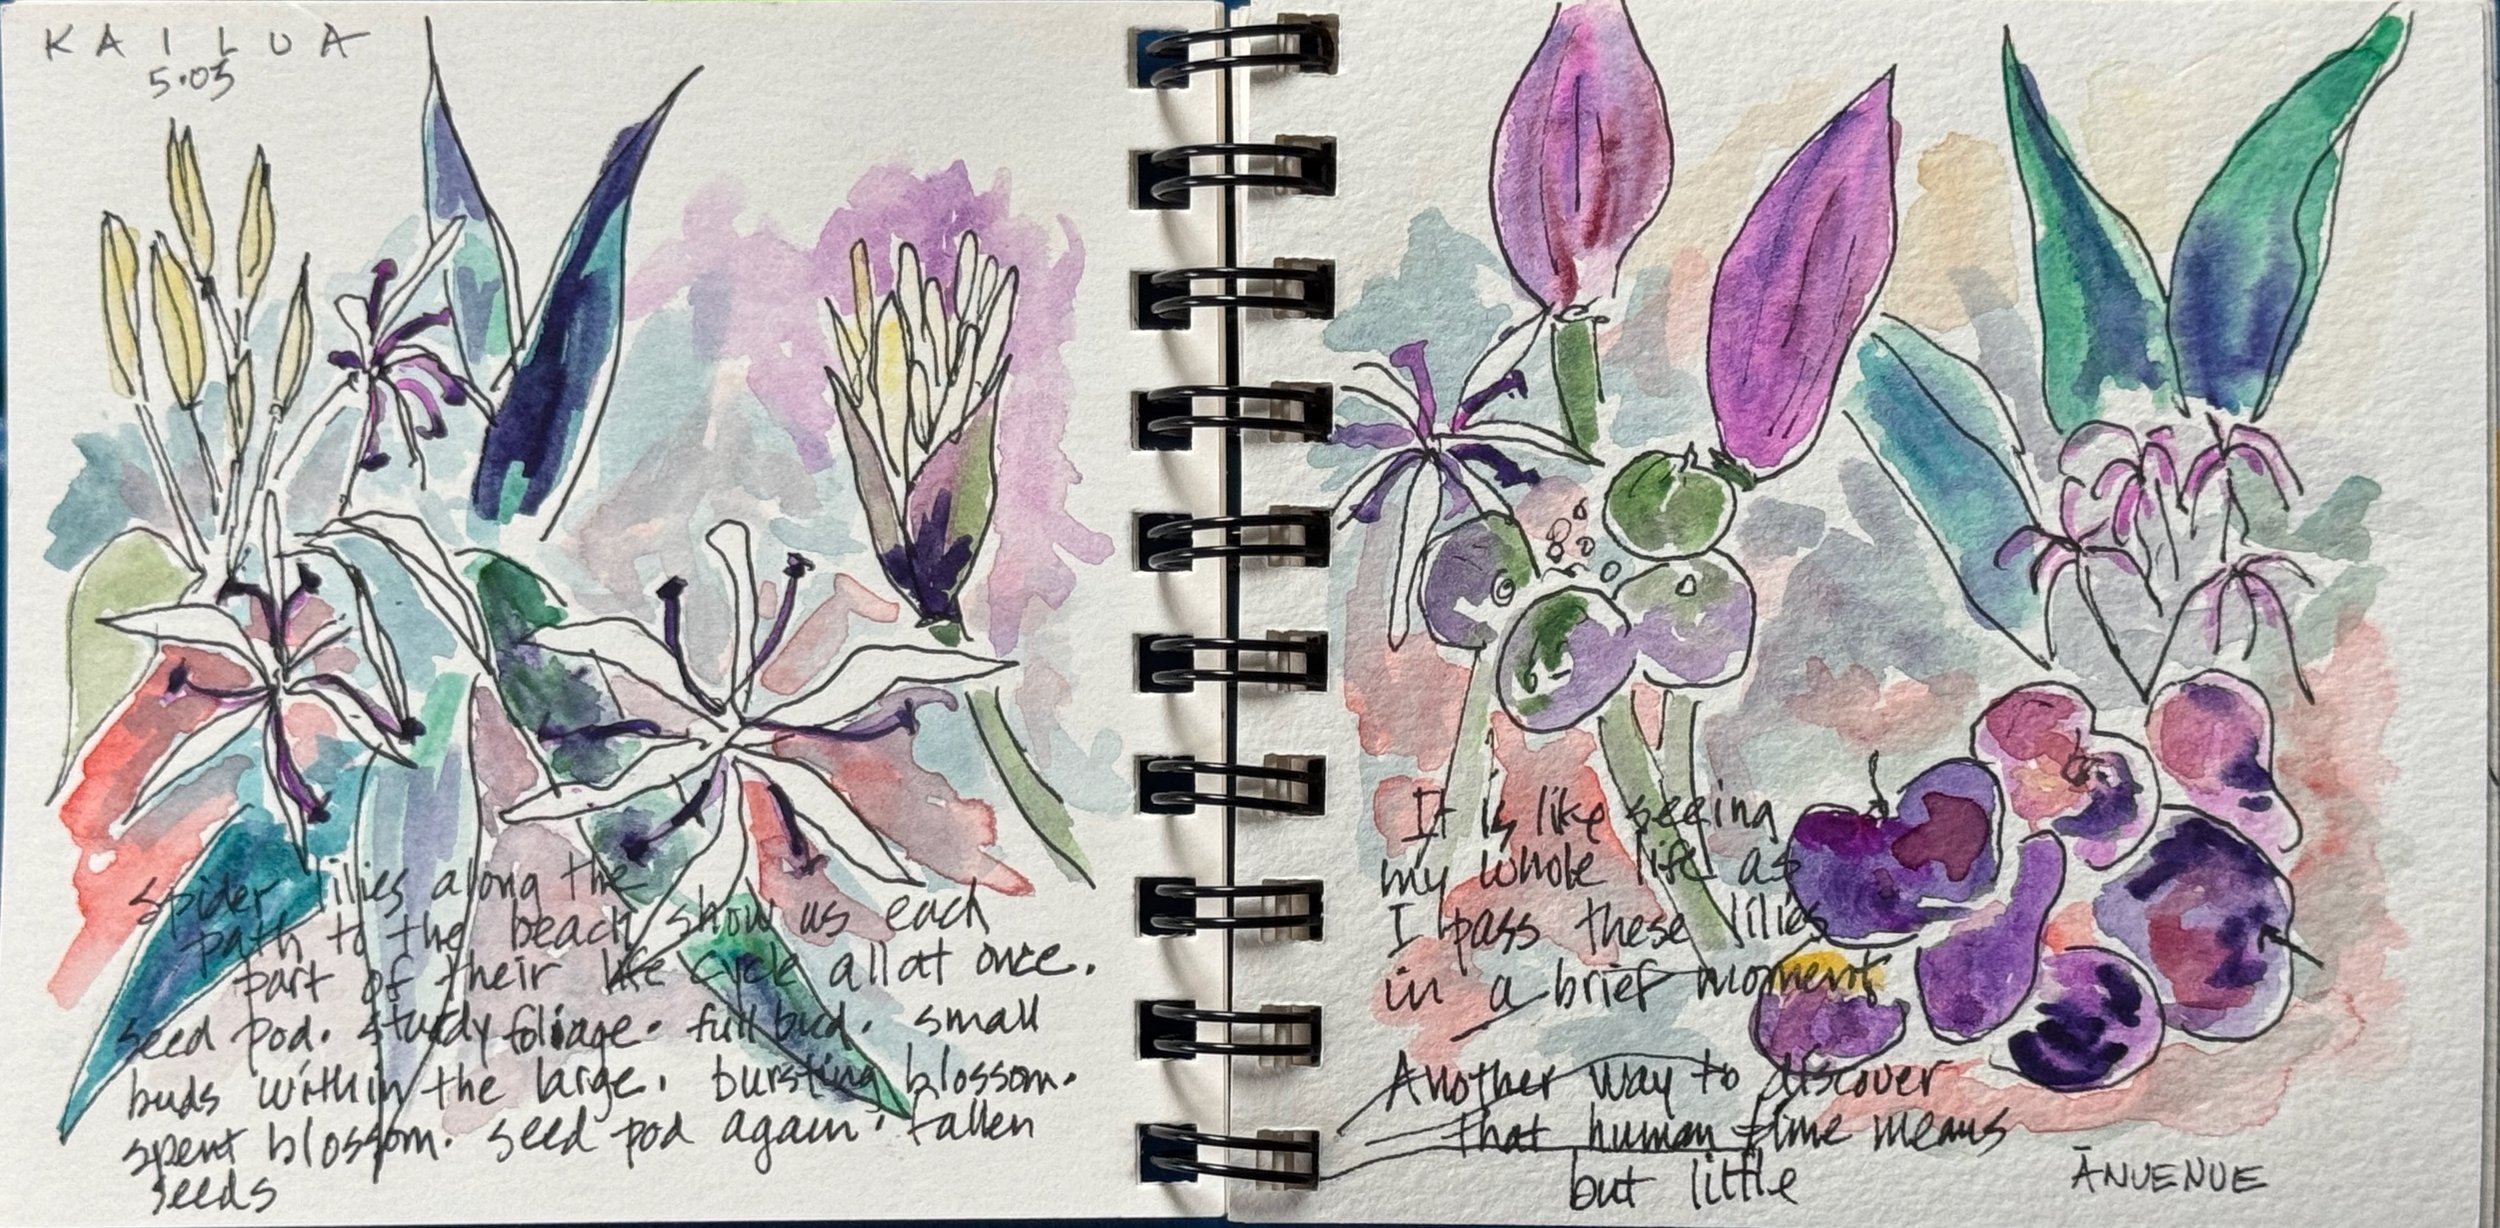 KAILUA
5.03
spider lilies along the
path to the beach show us each
part of their life cycle all at once.
seed pod. sturdy foliage. full bud. small
buds within the large. bursting blossom.
spent blossom. seed pod again. fallen
seeds
It is like seeing
my whole life as
I pass these lilies
in a brief moment
Another way to discover
that human time means
but little
ĀNUENUE